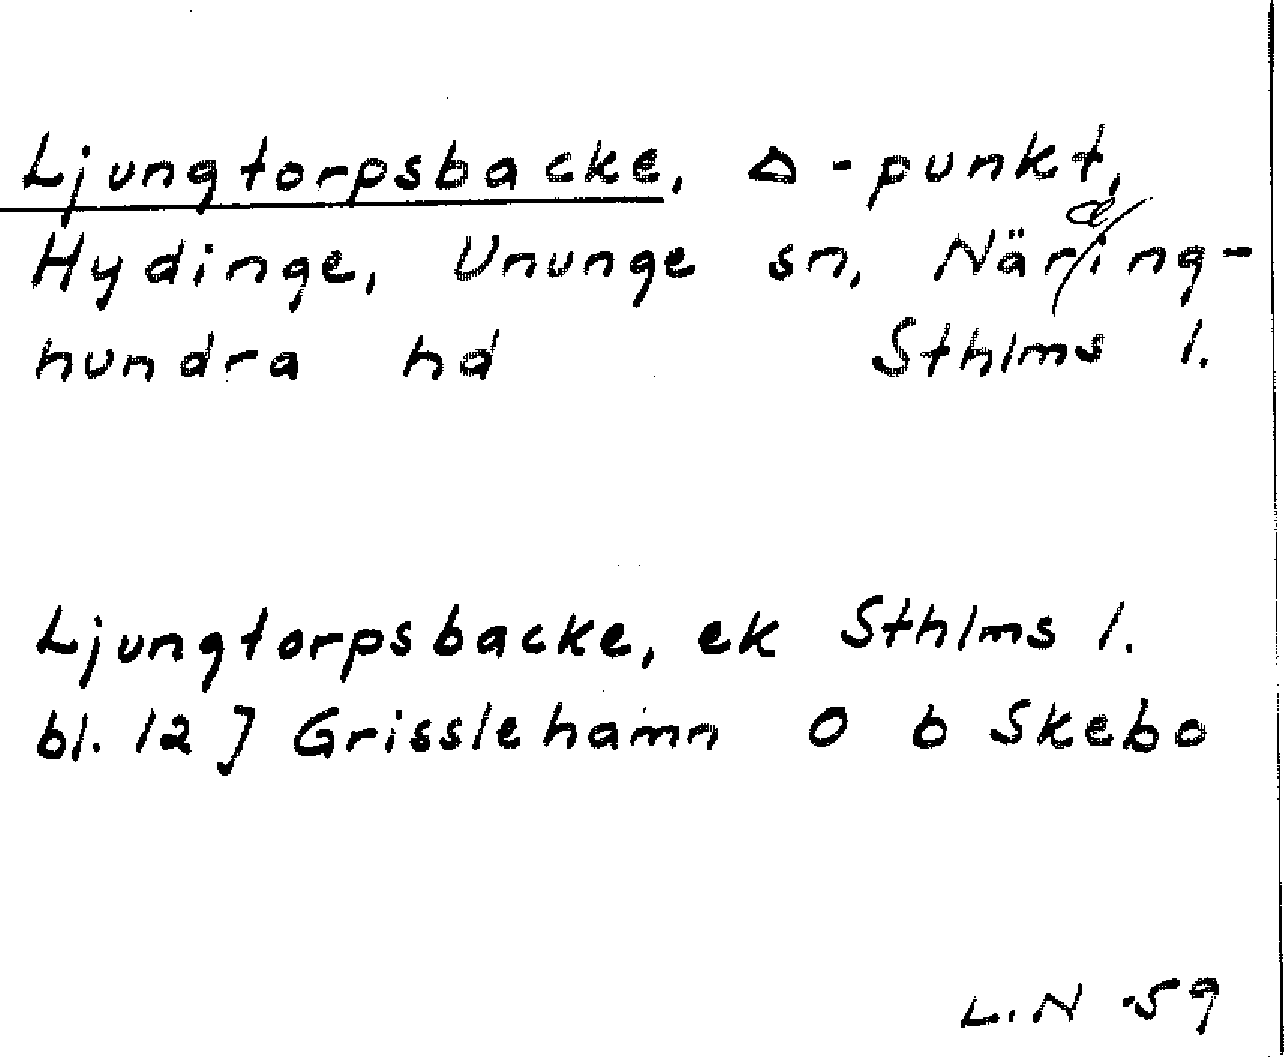 Ljungtorpsbacke, Δ-punkt,
Hydinge, Ununge sn, Närding-
hundra hd Sthlms l.
Ljungtorpsbacke, ek Sthlms l.
bl. 12 J Grisslehamn O b Skebo
L.N -59